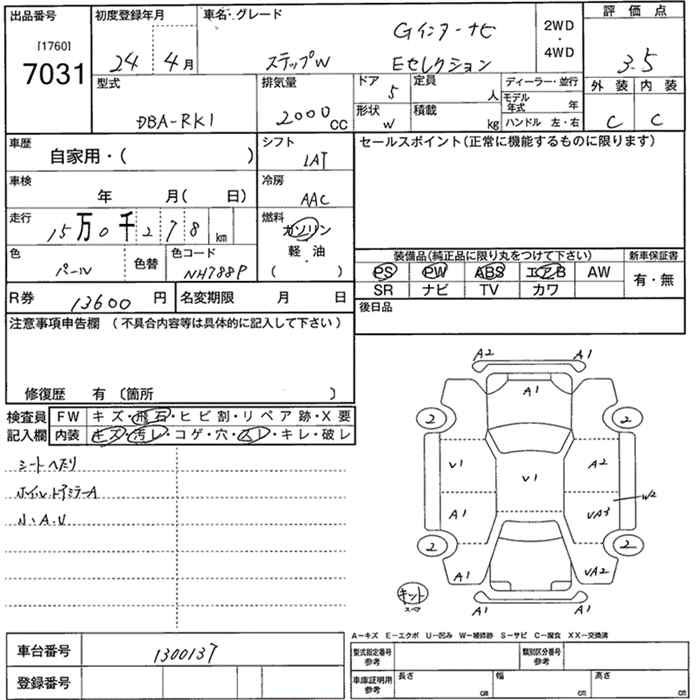 出品番号 初度登録年月 車名・グレード 評価点
[1760]
7031
24 4月
ステップW
Gインターナビ
Eセレクション
2WD
・
4WD
3.5
型式 排気量 ドア 定員 ディーラー・並行 外装 内装
DBA-RK1
2000CC
5
人
モデル年式 年
形状 積載 ハンドル 左・右
W
kg
C C
車歴 シフト セールスポイント(正常に機能するものに限ります)
自家用・( )
IAT
車検 冷房
年 月( 日)
AAC
走行 燃料
15万0千278km
ガソリン
軽・油
( )
色 色替 色コード
パール
NH788P
装備品(純正品に限り丸をつけて下さい) 新車保証書
PS PW ABS エアB AW
有・無
SR ナビ TV カワ
R券 13600円 名変期限 月 日
後日品
注意事項申告欄 (不具合内容等は具体的に記入して下さい)
修復歴 有 〔箇所 〕
検査員 FW キズ・飛石・ヒビ割・リペア跡・X要
記入欄 内装 キズ・汚レ・コゲ・穴・スレ・キレ・破レ
シートヘタリ
ホイル、ドアミラーA
小、A.U
A2 A1
A1
2 2
V1 V1 A2
W2
A1 VA3
2 2
A1 VA2
キット
A1 A1
A−キズ E−エクボ U−凹み W−補修跡 S−サビ C−腐食 XX−交換済
車台番号 1300137
型式指定番号 参考 類別区分番号 参考
登録番号
車庫証明用 参考 長さ cm 幅 cm 高さ cm